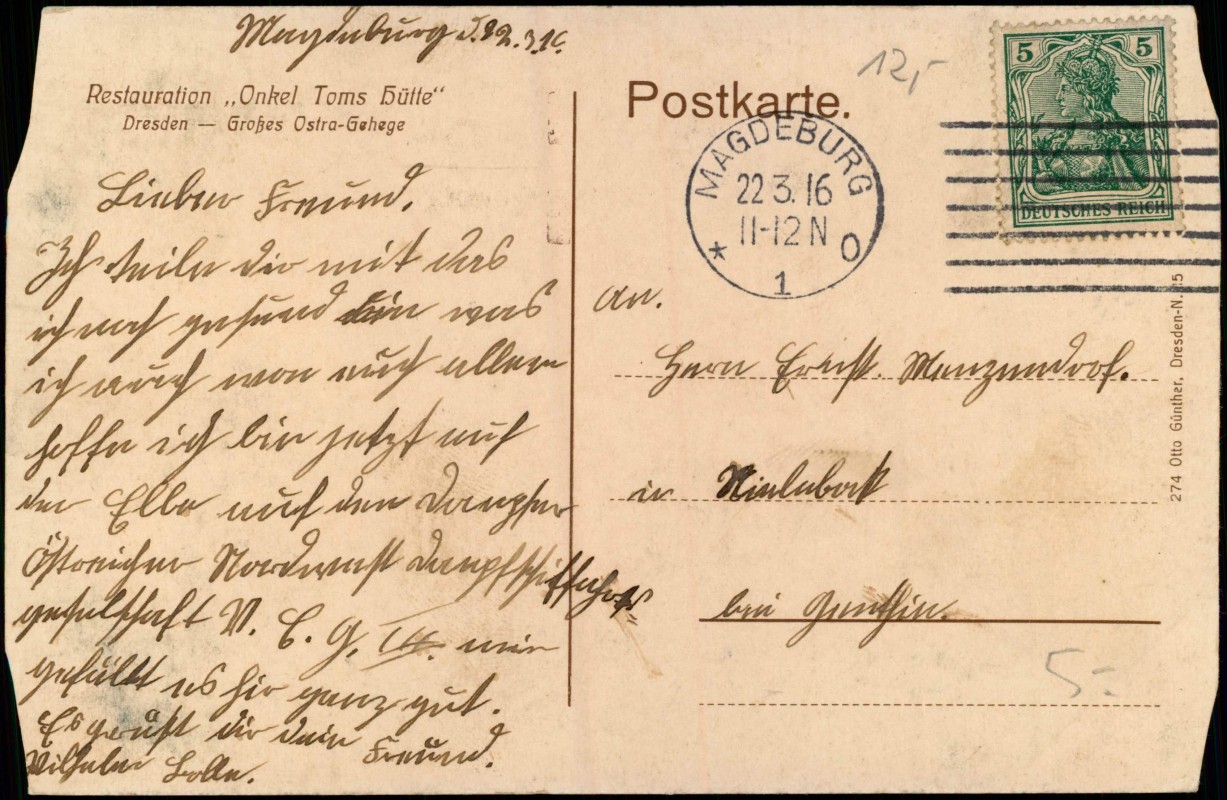 Magdeburg d. 22.3.16.
Restauration „Onkel Toms Hütte“
Dresden — Großes Ostra-Gehege
Lieber Freund.
Ich teile dir mit das
ich noch gesund bin was
ich auch von euch allen
hoffe ich bin jetzt auf
der Elbe auf den Dampfer
Östreicher Nordwest Dampfschiffahrts
geselschaft N. E. G. mir
gefällt es hir ganz gut.
Es grüßt dir dein Freund.
Wilhelm Bolle.
Postkarte.
12,-
5 5
DEUTSCHES REICH
MAGDEBURG
22 3. 16
11-12 N
* 1 O
An.
Herrn Ernst. Manzendorf.
in Nielebock
bei Genthin.
5.-
274 Otto Günther, Dresden-N. 15